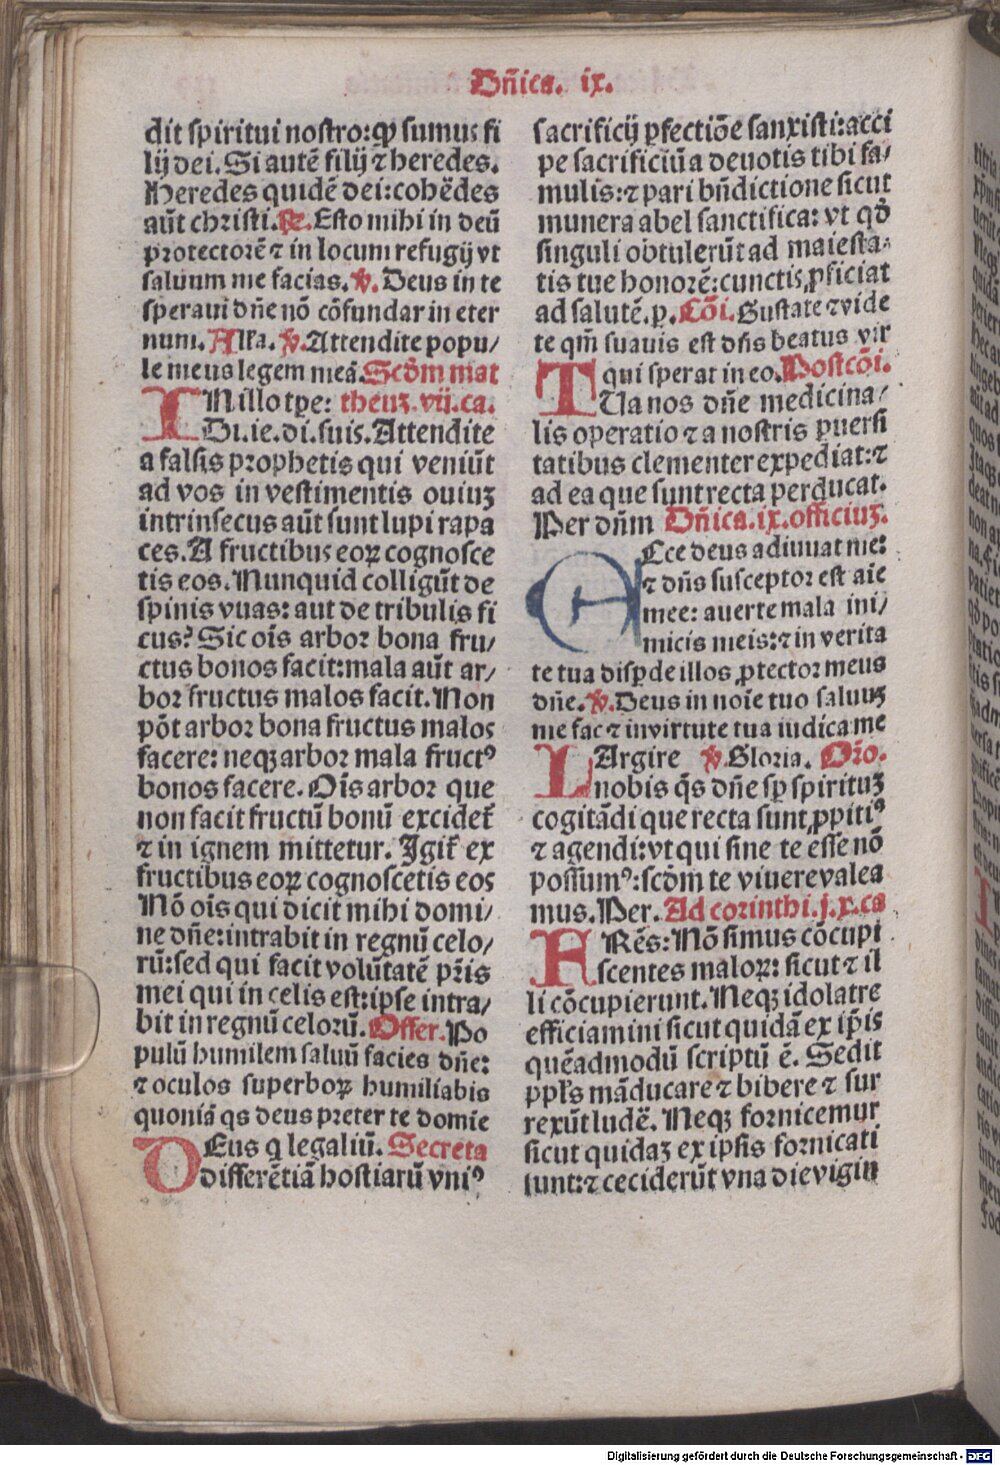 Dñica. ix.
dit spiritui nostro: ꝙ sumus fi
lij dei. Si autē filij ⁊ heredes.
Heredes quidē dei: cohēdes
aūt christi. ꝶ. Esto mihi in deū
protectorē ⁊ in locum refugij vt
saluum me facias. ℣. Deus in te
speraui dñe nō cōfundar in eter
num. Alla. ℣. Attendite popu/
le meus legem meā. Scđm mat
IN illo tꝑe: theuꝫ. vij. ca.
Di. ie. di. suis. Attendite
a falsis prophetis qui veniūt
ad vos in vestimentis ouiuꝫ
intrinsecus aūt sunt lupi rapa
ces. A fructibus eoꝝ cognosce
tis eos. Nunquid colligūt de
spinis vuas: aut de tribulis fi
cus? Sic oīs arbor bona fru/
ctus bonos facit: mala aūt ar/
bor fructus malos facit. Non
pōt arbor bona fructus malos
facere: neqꝫ arbor mala fructꝰ
bonos facere. Oīs arbor que
non facit fructū bonū excidet̄
⁊ in ignem mittetur. Igit̄ ex
fructibus eoꝝ cognoscetis eos
Nō oīs qui dicit mihi domi/
ne dñe: intrabit in regnū celo/
rū: sed qui facit volūtatē pr̄is
mei qui in celis est: ipse intra/
bit in regnū celorū. Offer. Po
pulū humilem saluū facies dñe:
⁊ oculos superboꝝ humiliabis
quoniā qs deus preter te domie
DEus q legaliū. Secreta
differētiā hostiarū vniꝰ
sacrificij ꝑfectiōe sanxisti: acci
pe sacrificiū a deuotis tibi fa/
mulis: ⁊ pari bñdictione sicut
munera abel sanctifica: vt qđ
singuli obtulerūt ad maiesta/
tis tue honorē: cunctis ꝓficiat
ad salutē. p. Cōi. Gustate ⁊ vide
te qm̄ suauis est dñs beatus vir
qui sperat in eo. Postcōi.
TUa nos dñe medicina/
lis operatio ⁊ a nostris ꝑuersi
tatibus clementer expediat: ⁊
ad ea que sunt recta perducat.
Per dñm Dñica. ix. officiuꝫ.
ECce deus adiuuat me:
⁊ dñs susceptor est aīe
mee: auerte mala ini/
micis meis: ⁊ in verita
te tua disꝑde illos ꝓtector meus
dñe. ℣. Deus in noīe tuo saluuꝫ
me fac ⁊ in virtute tua iudica me
LArgire ℣. Gloria. Or̄o.
nobis q̄s dñe sꝑ spirituꝫ
cogitādi que recta sunt ꝓpitiꝰ
⁊ agendi: vt qui sine te esse nō
possumꝰ: scđm te viuere valea
mus. Per. Ad corinthi. j. x. ca
FRēs: Nō simus cōcupi
scentes maloꝝ: sicut ⁊ il
li cōcupierunt. Neqꝫ idolatre
efficiamini sicut quidā ex ip̄is
quēadmodū scriptū ē. Sedit
ppl̄s māducare ⁊ bibere ⁊ sur
rexūt ludē. Neqꝫ fornicemur
sicut quidaꝫ ex ipsis fornicati
sunt: ⁊ ceciderūt vna die vigin
Digitalisierung gefördert durch die Deutsche Forschungsgemeinschaft - DFG